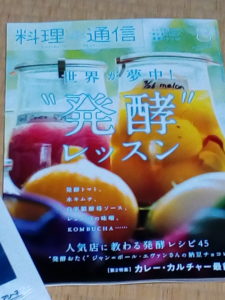 料理通信
7/26 melon
世界が夢中！
“発酵”
レッスン
発酵トマト、
水キムチ、
レモンの味噌、
KOMBUCHA……
人気店に教わる発酵レシピ45
“発酵おたく”ジャン=ポール・エヴァンさんの納豆チョコレ
【第2特集】カレー・カルチャー最前